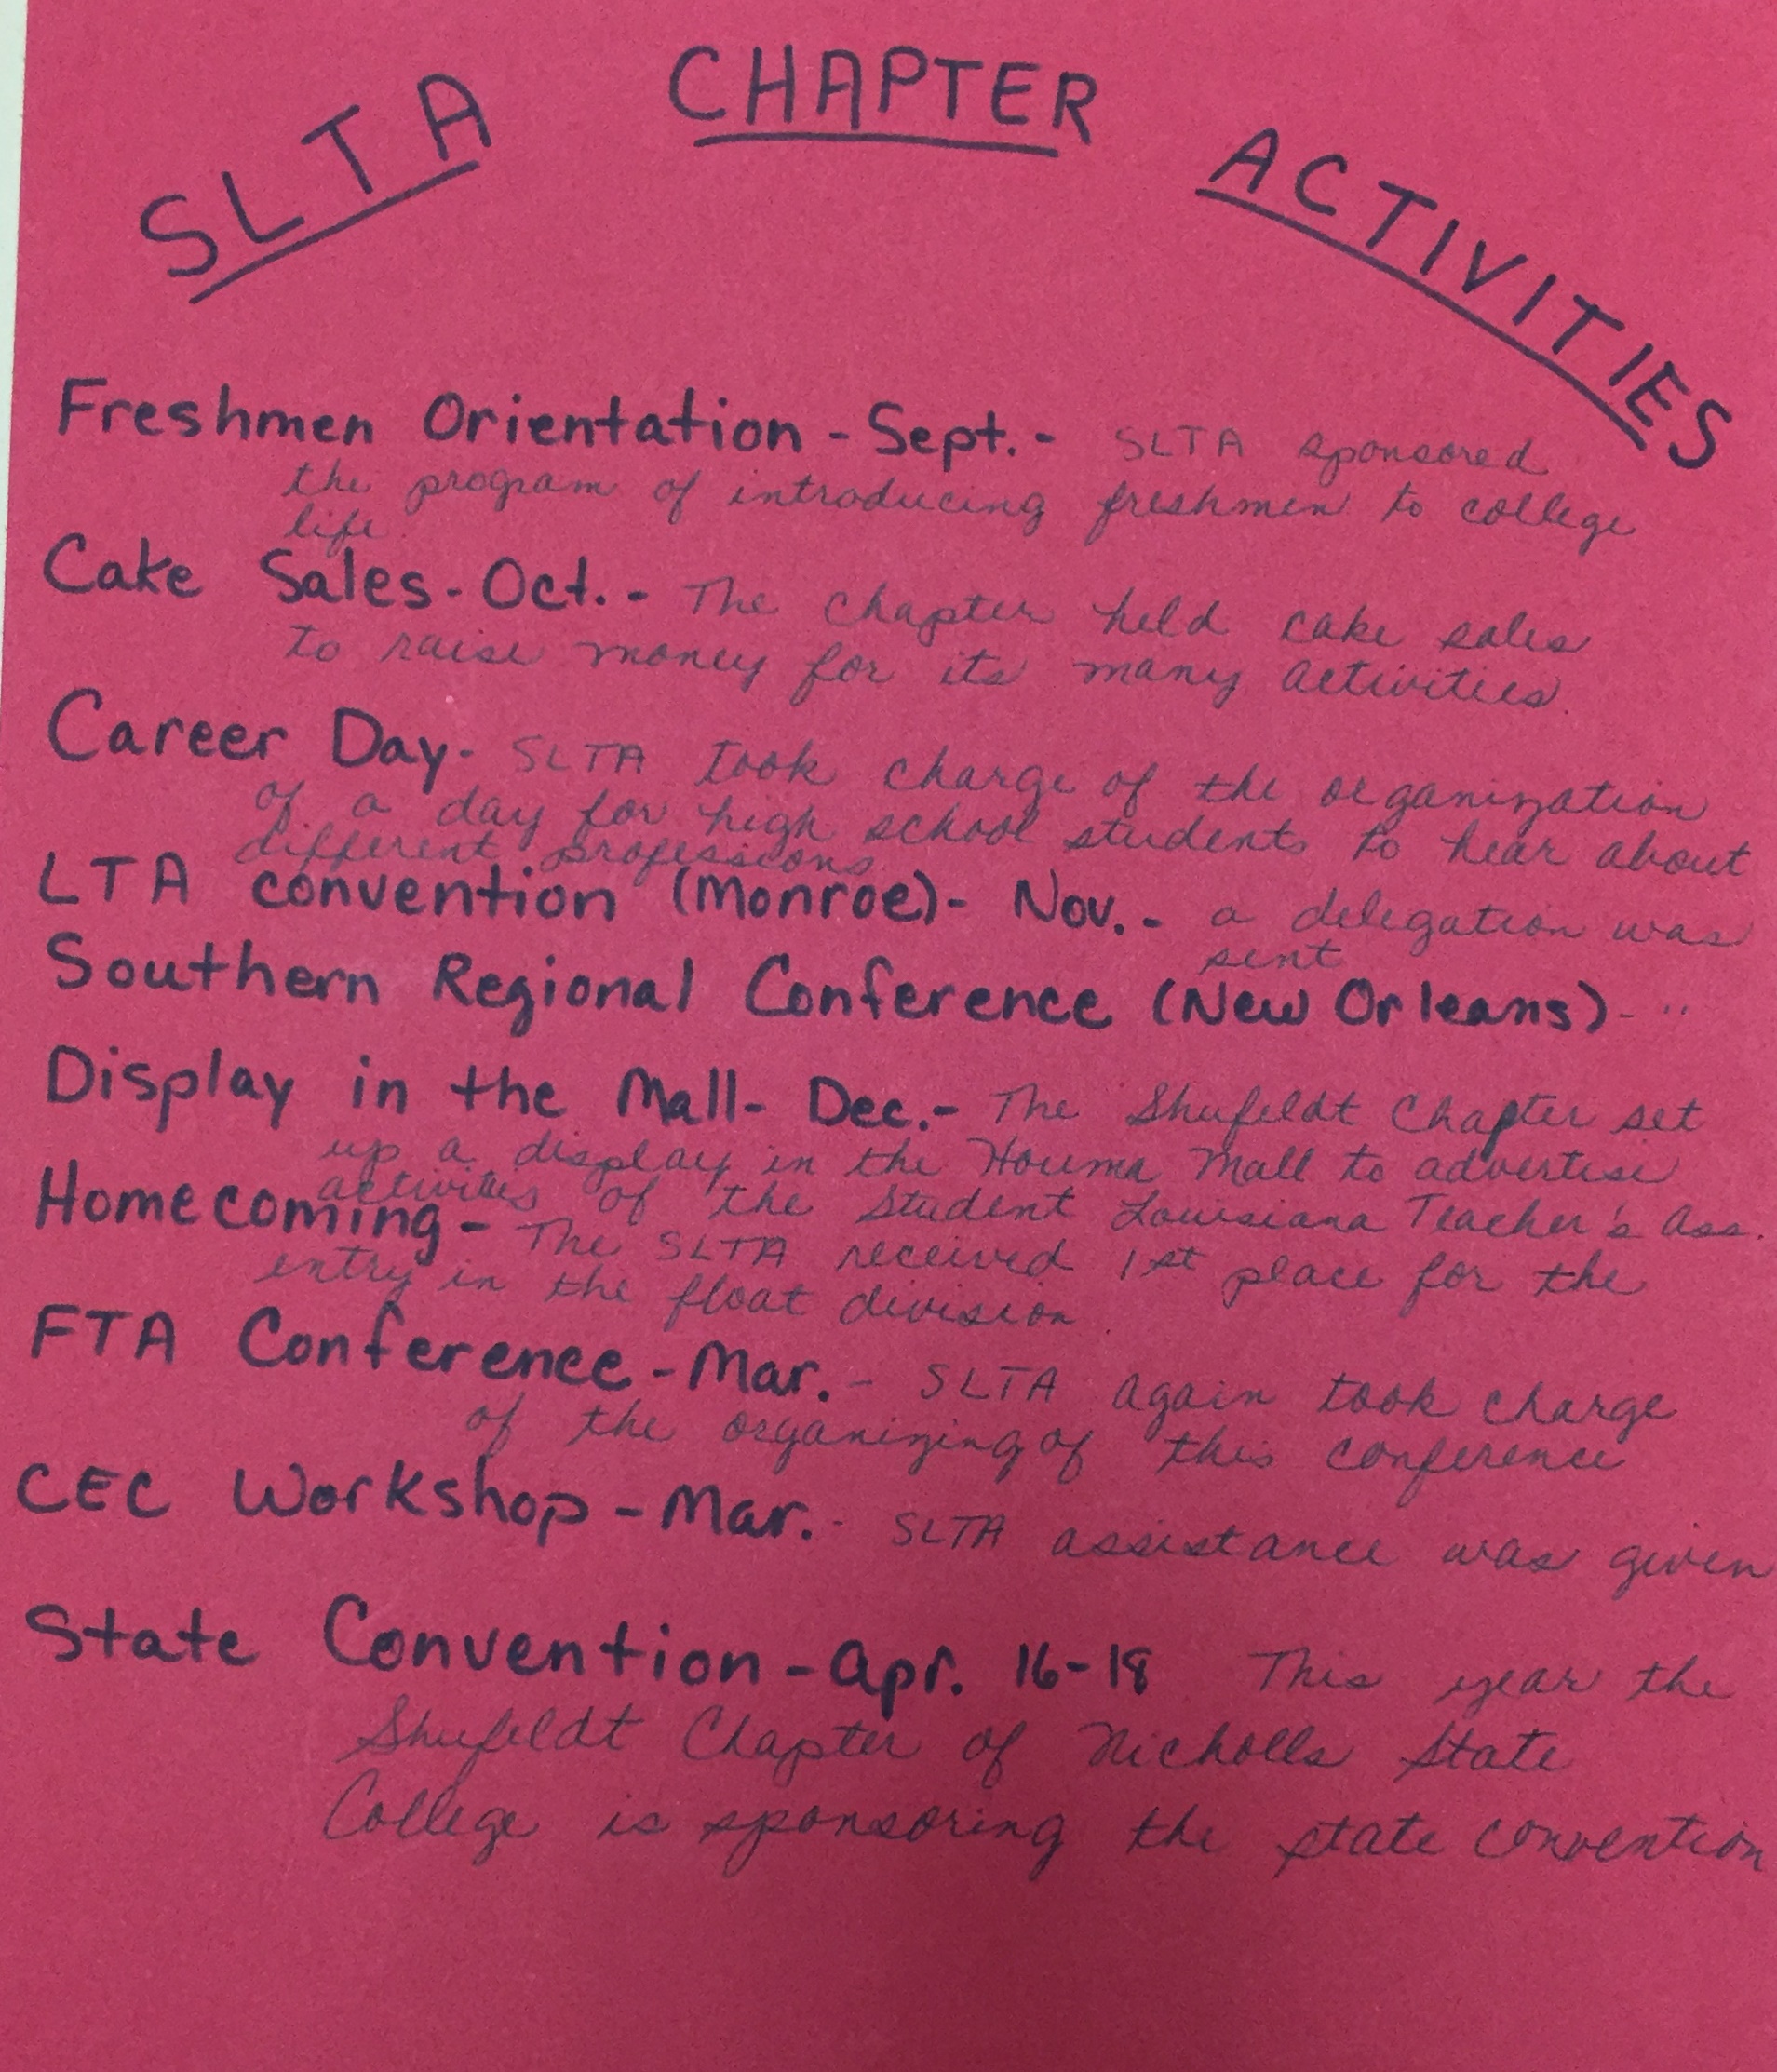 SLTA CHAPTER ACTIVITIES
Freshmen Orientation - Sept. - SLTA sponsored
the program of introducing freshmen to college
life
Cake Sales - Oct. - The chapter held cake sales
to raise money for its many activities.
Career Day - SLTA took charge of the organization
of a day for high school students to hear about
different professions.
LTA convention (Monroe) - Nov. - a delegation was
sent
Southern Regional Conference (New Orleans) - "
Display in the Mall - Dec. - The Shufeldt Chapter set
up a display in the Houma Mall to advertise
activities of the Student Louisiana Teacher's Ass.
Homecoming - The SLTA received 1st place for the
entry in the float division.
FTA Conference - Mar. - SLTA again took charge
of the organizing of this conference
CEC Workshop - Mar. - SLTA assistance was given
State Convention - Apr. 16-18 This year the
Shufeldt Chapter of Nicholls State
College is sponsoring the state convention